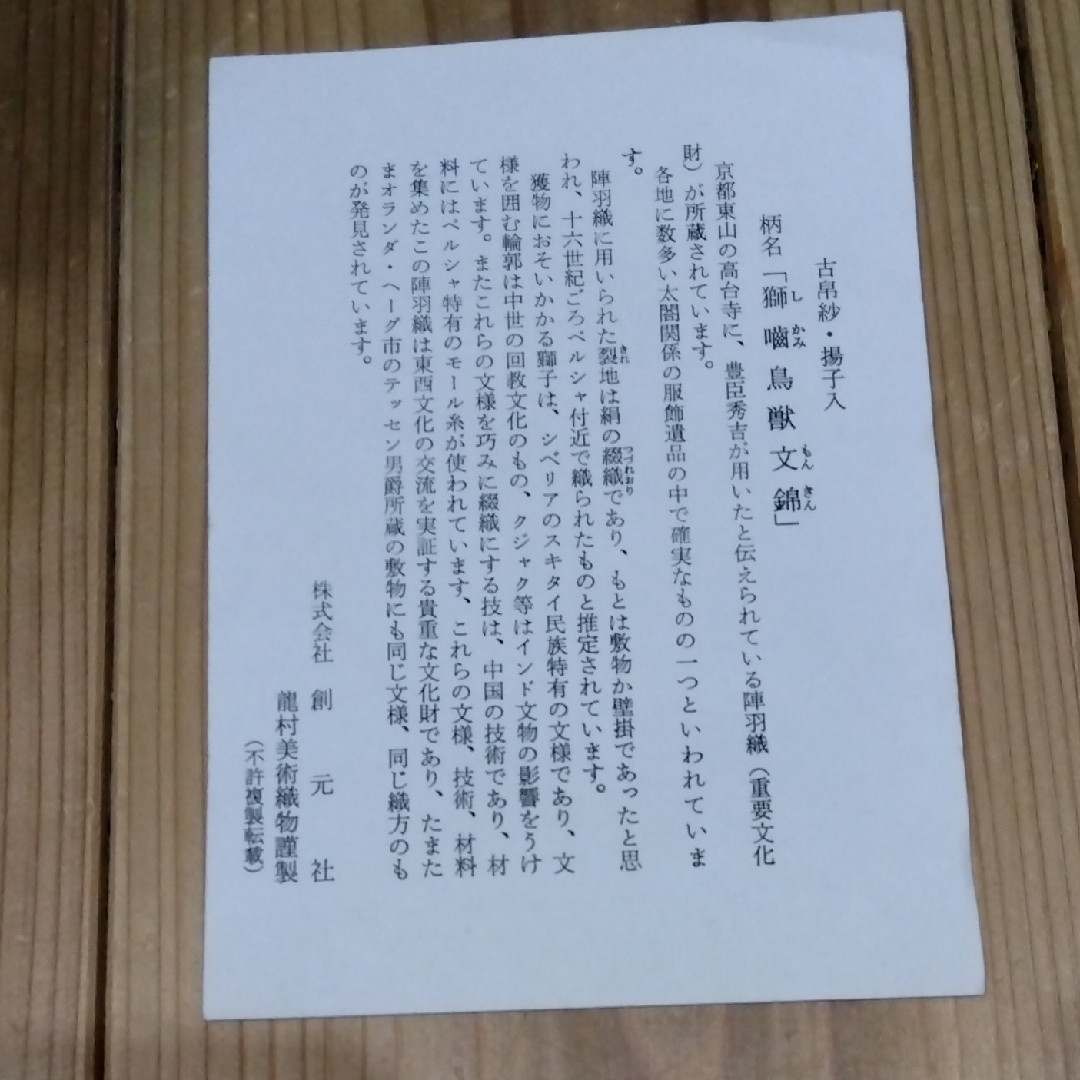 古帛紗・揚子入
柄名「獅嚙鳥獣文錦」
し かみ もん きん
京都東山の高台寺に、豊臣秀吉が用いたと伝えられている陣羽織(重要文化
財)が所蔵されています。
各地に数多い太閤関係の服飾遺品の中で確実なものの一つといわれていま
す。
陣羽織に用いられた裂地は絹の綴織であり、もとは敷物か壁掛であったと思
きれ つづれおり
われ、十六世紀ごろペルシャ付近で織られたものと推定されています。
獲物におそいかかる獅子は、シベリアのスキタイ民族特有の文様であり、文
様を囲む輪郭は中世の回教文化のもの、クジャク等はインド文物の影響をうけ
ています。またこれらの文様を巧みに綴織にする技は、中国の技術であり、材
料にはペルシャ特有のモール糸が使われています、これらの文様、技術、材料
を集めたこの陣羽織は東西文化の交流を実証する貴重な文化財であり、たまた
まオランダ・ヘーグ市のテッセン男爵所蔵の敷物にも同じ文様、同じ織方のも
のが発見されています。
株式会社 創元社
龍村美術織物謹製
(不許複製転載)